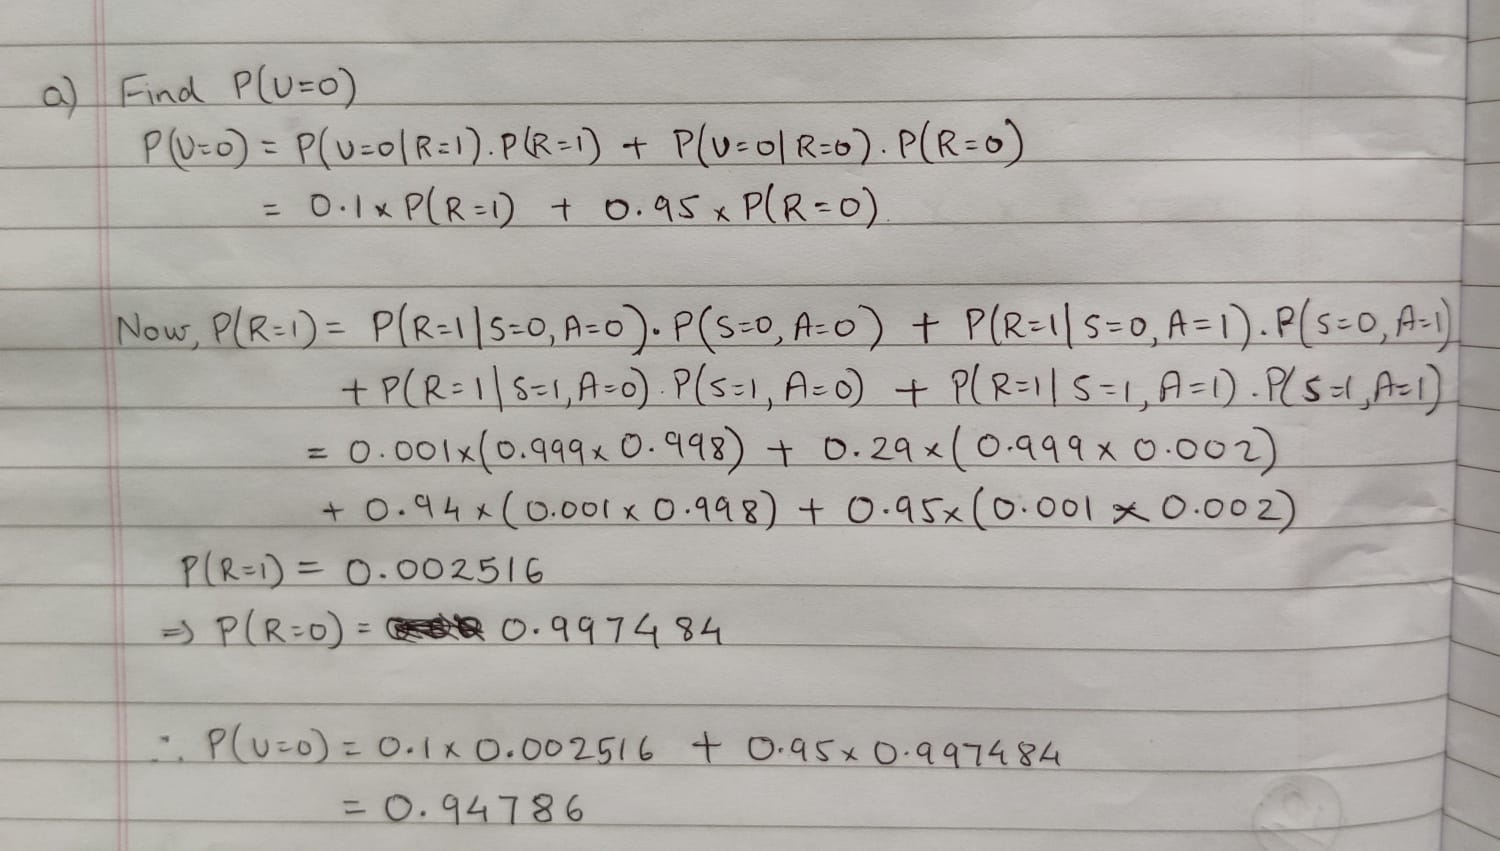 a) Find P(U=0)
P(U=0) = P(U=0|R=1).P(R=1) + P(U=0|R=0).P(R=0)
= 0.1 x P(R=1) + 0.95 x P(R=0).
Now, P(R=1) = P(R=1|S=0, A=0). P(S=0, A=0) + P(R=1|S=0, A=1).P(S=0, A=1)
+ P(R=1|S=1, A=0). P(S=1, A=0) + P(R=1|S=1, A=1).P(S=1, A=1)
= 0.001x(0.999x 0.998) + 0.29 x (0.999 x 0.002)
+ 0.94 x (0.001 x 0.998) + 0.95x (0.001 x 0.002)
P(R=1) = 0.002516
⇒ P(R=0) = 0.997484
∴ P(U=0) = 0.1 x 0.002516 + 0.95 x 0.997484
= 0.94786